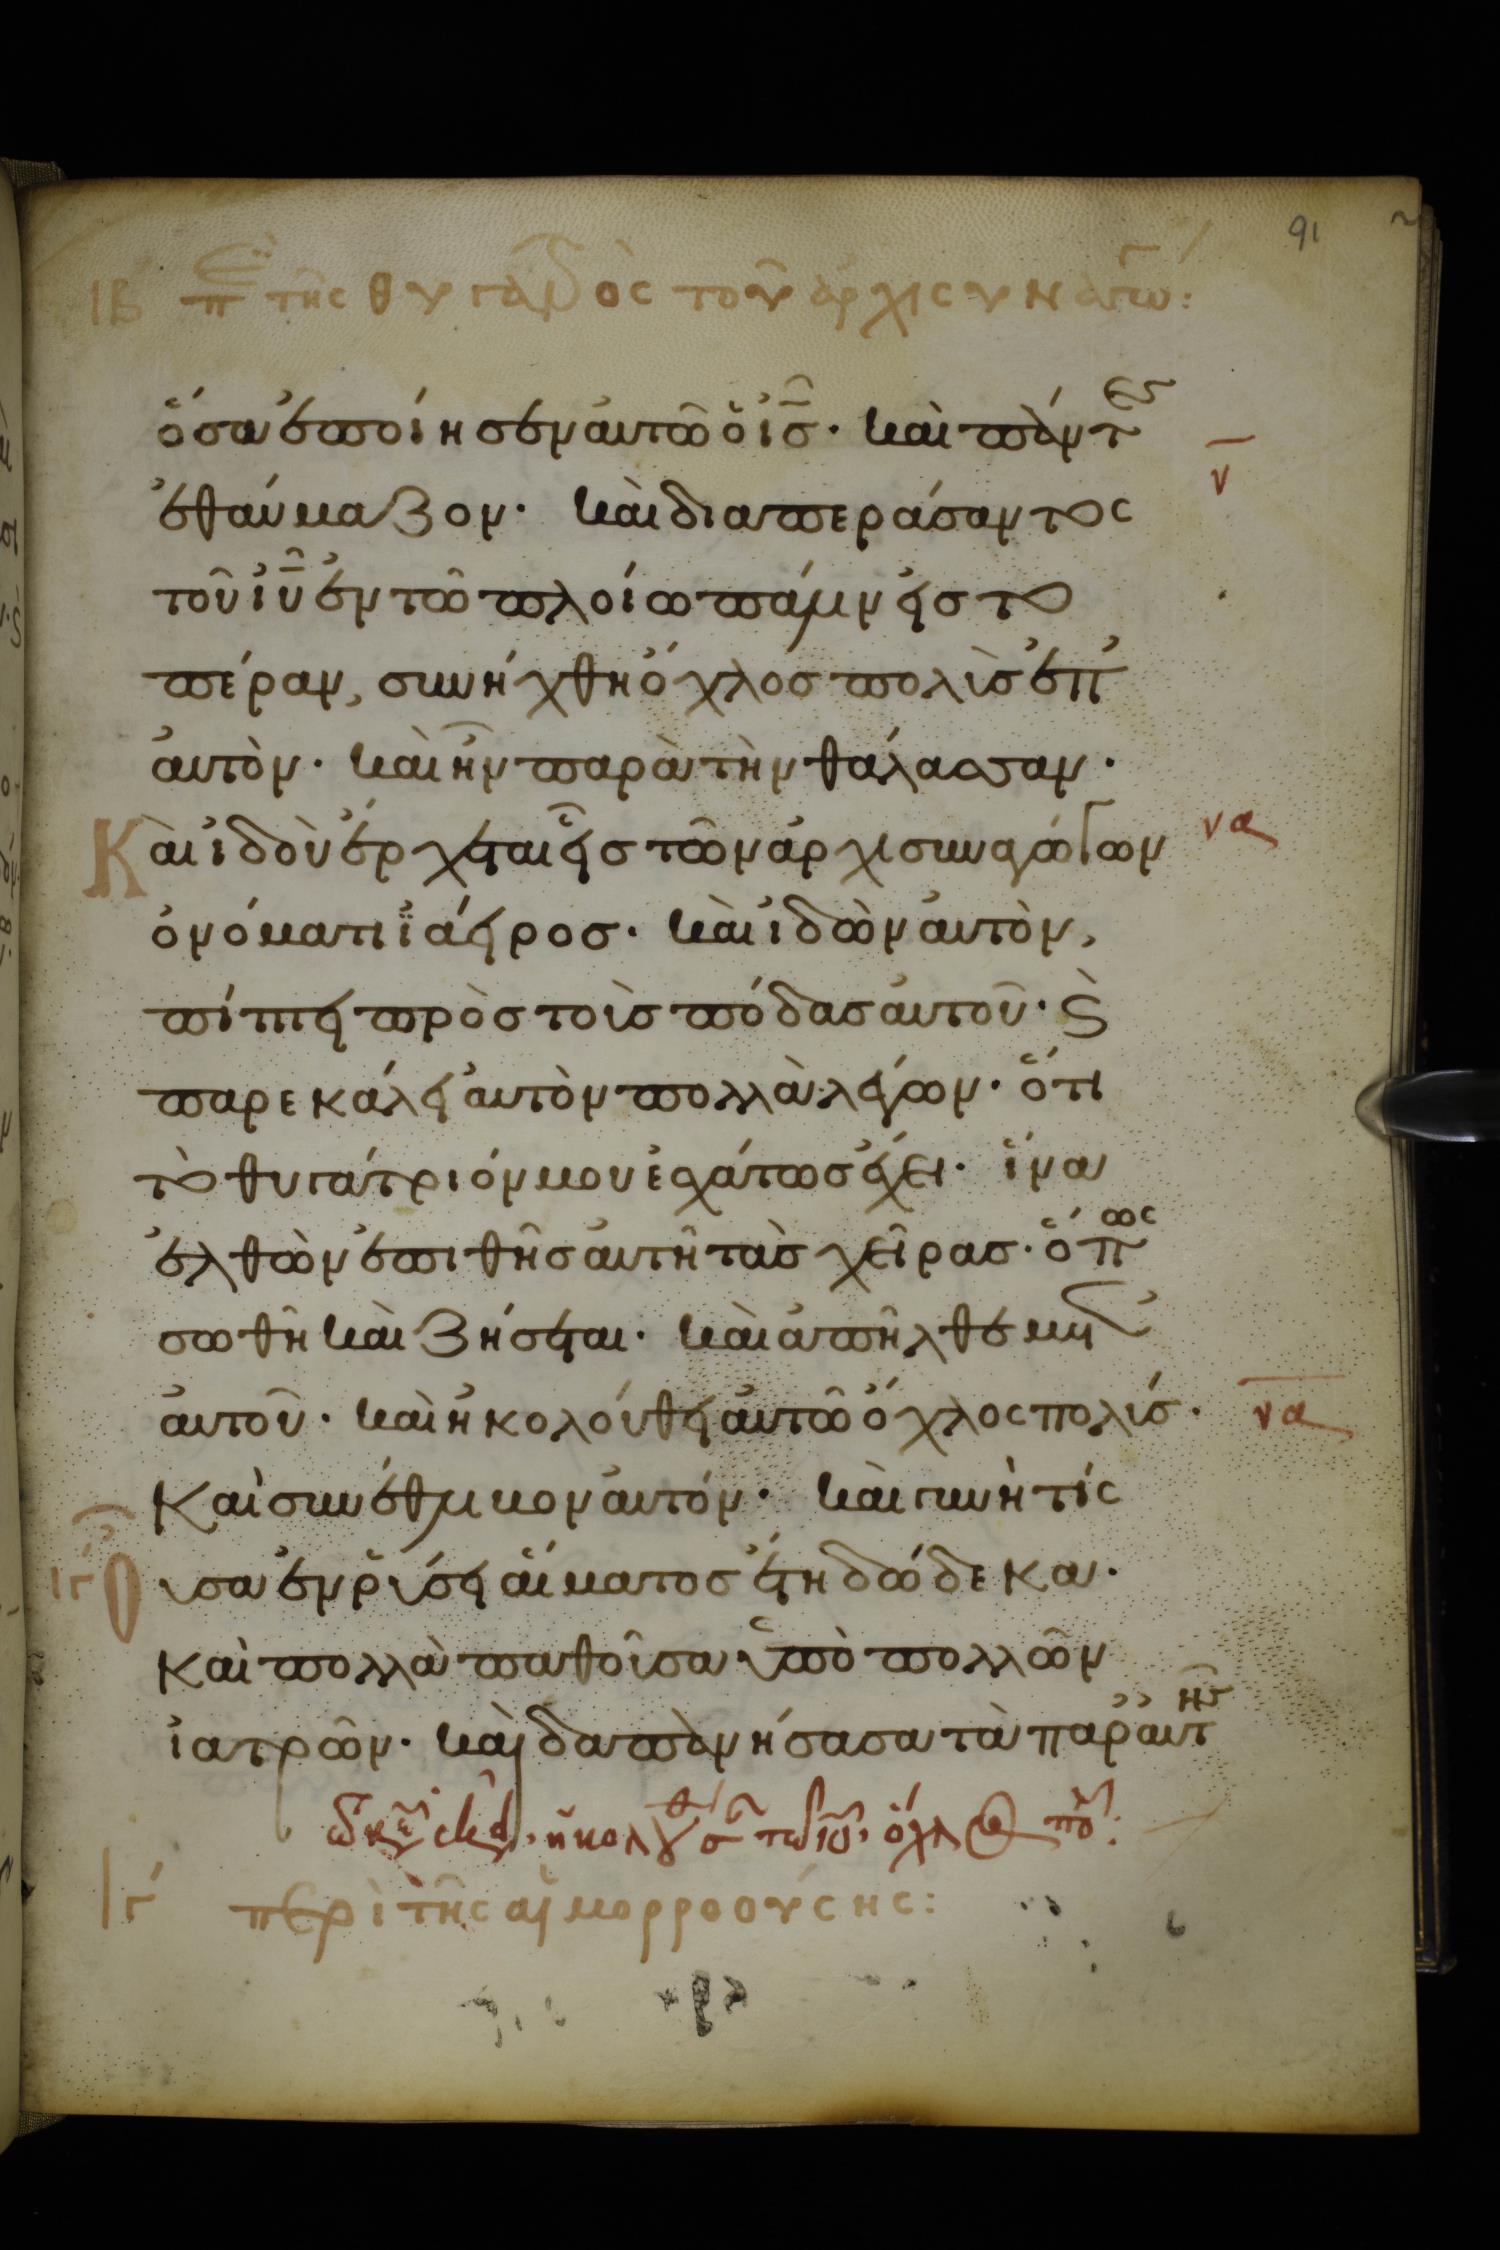 91
ΙΒ π̅ε̅ τῆς θυγατρὸς τοῦ ἀρχισυναγώ:
ὅσα ἐποίησεν αὐτῶ ὁ ι̅ς̅· καὶ πάντες
ν̅
ἐθαύμαζον· καὶ διαπεράσαντος
τοῦ ι̅υ̅ ἐν τῶ πλοίω πάλιν εἰς τὸ
πέραν, συνήχθη ὄχλος πολὺς ἐπ
αὐτὸν· καὶ ἦν παρὰ τὴν θάλασσαν·
Καὶ ἰδοὺ ἔρχεται εἷς τῶν ἀρχισυναγώγων
να
ὀνόματι ϊάειρος· καὶ ἰδὼν αὐτὸν,
πίπτει πρὸς τοὺς πόδας αὐτοῦ· ϗ
παρεκάλει αὐτὸν πολλὰ λέγων· ὅτι
τὸ θυγάτριόν μου ἐσχάτως ἔχει· ἵνα
ἐλθὼν ἐπιθῆς αὐτῆ τὰς χεῖρας· ὅπως
σωθῆ καὶ ζήσεται· καὶ ἀπῆλθε μετ
αὐτοῦ· καὶ ἠκολούθει αὐτῶ ὄχλος πολύς·
να
Καὶ συνέθλιβον αὐτόν· καὶ γυνή τίς
ΙΓ Ο
υσα ἐν ῥύσει αἵματος ἔτη δώδεκα·
καὶ πολλὰ παθοῦσα ὑπὸ πολλῶν
ἰατρῶν· καὶ δαπανήσασα τὰ παρ' αὐτῆς
ΙΓ περὶ τῆς αἱμορροούσης: